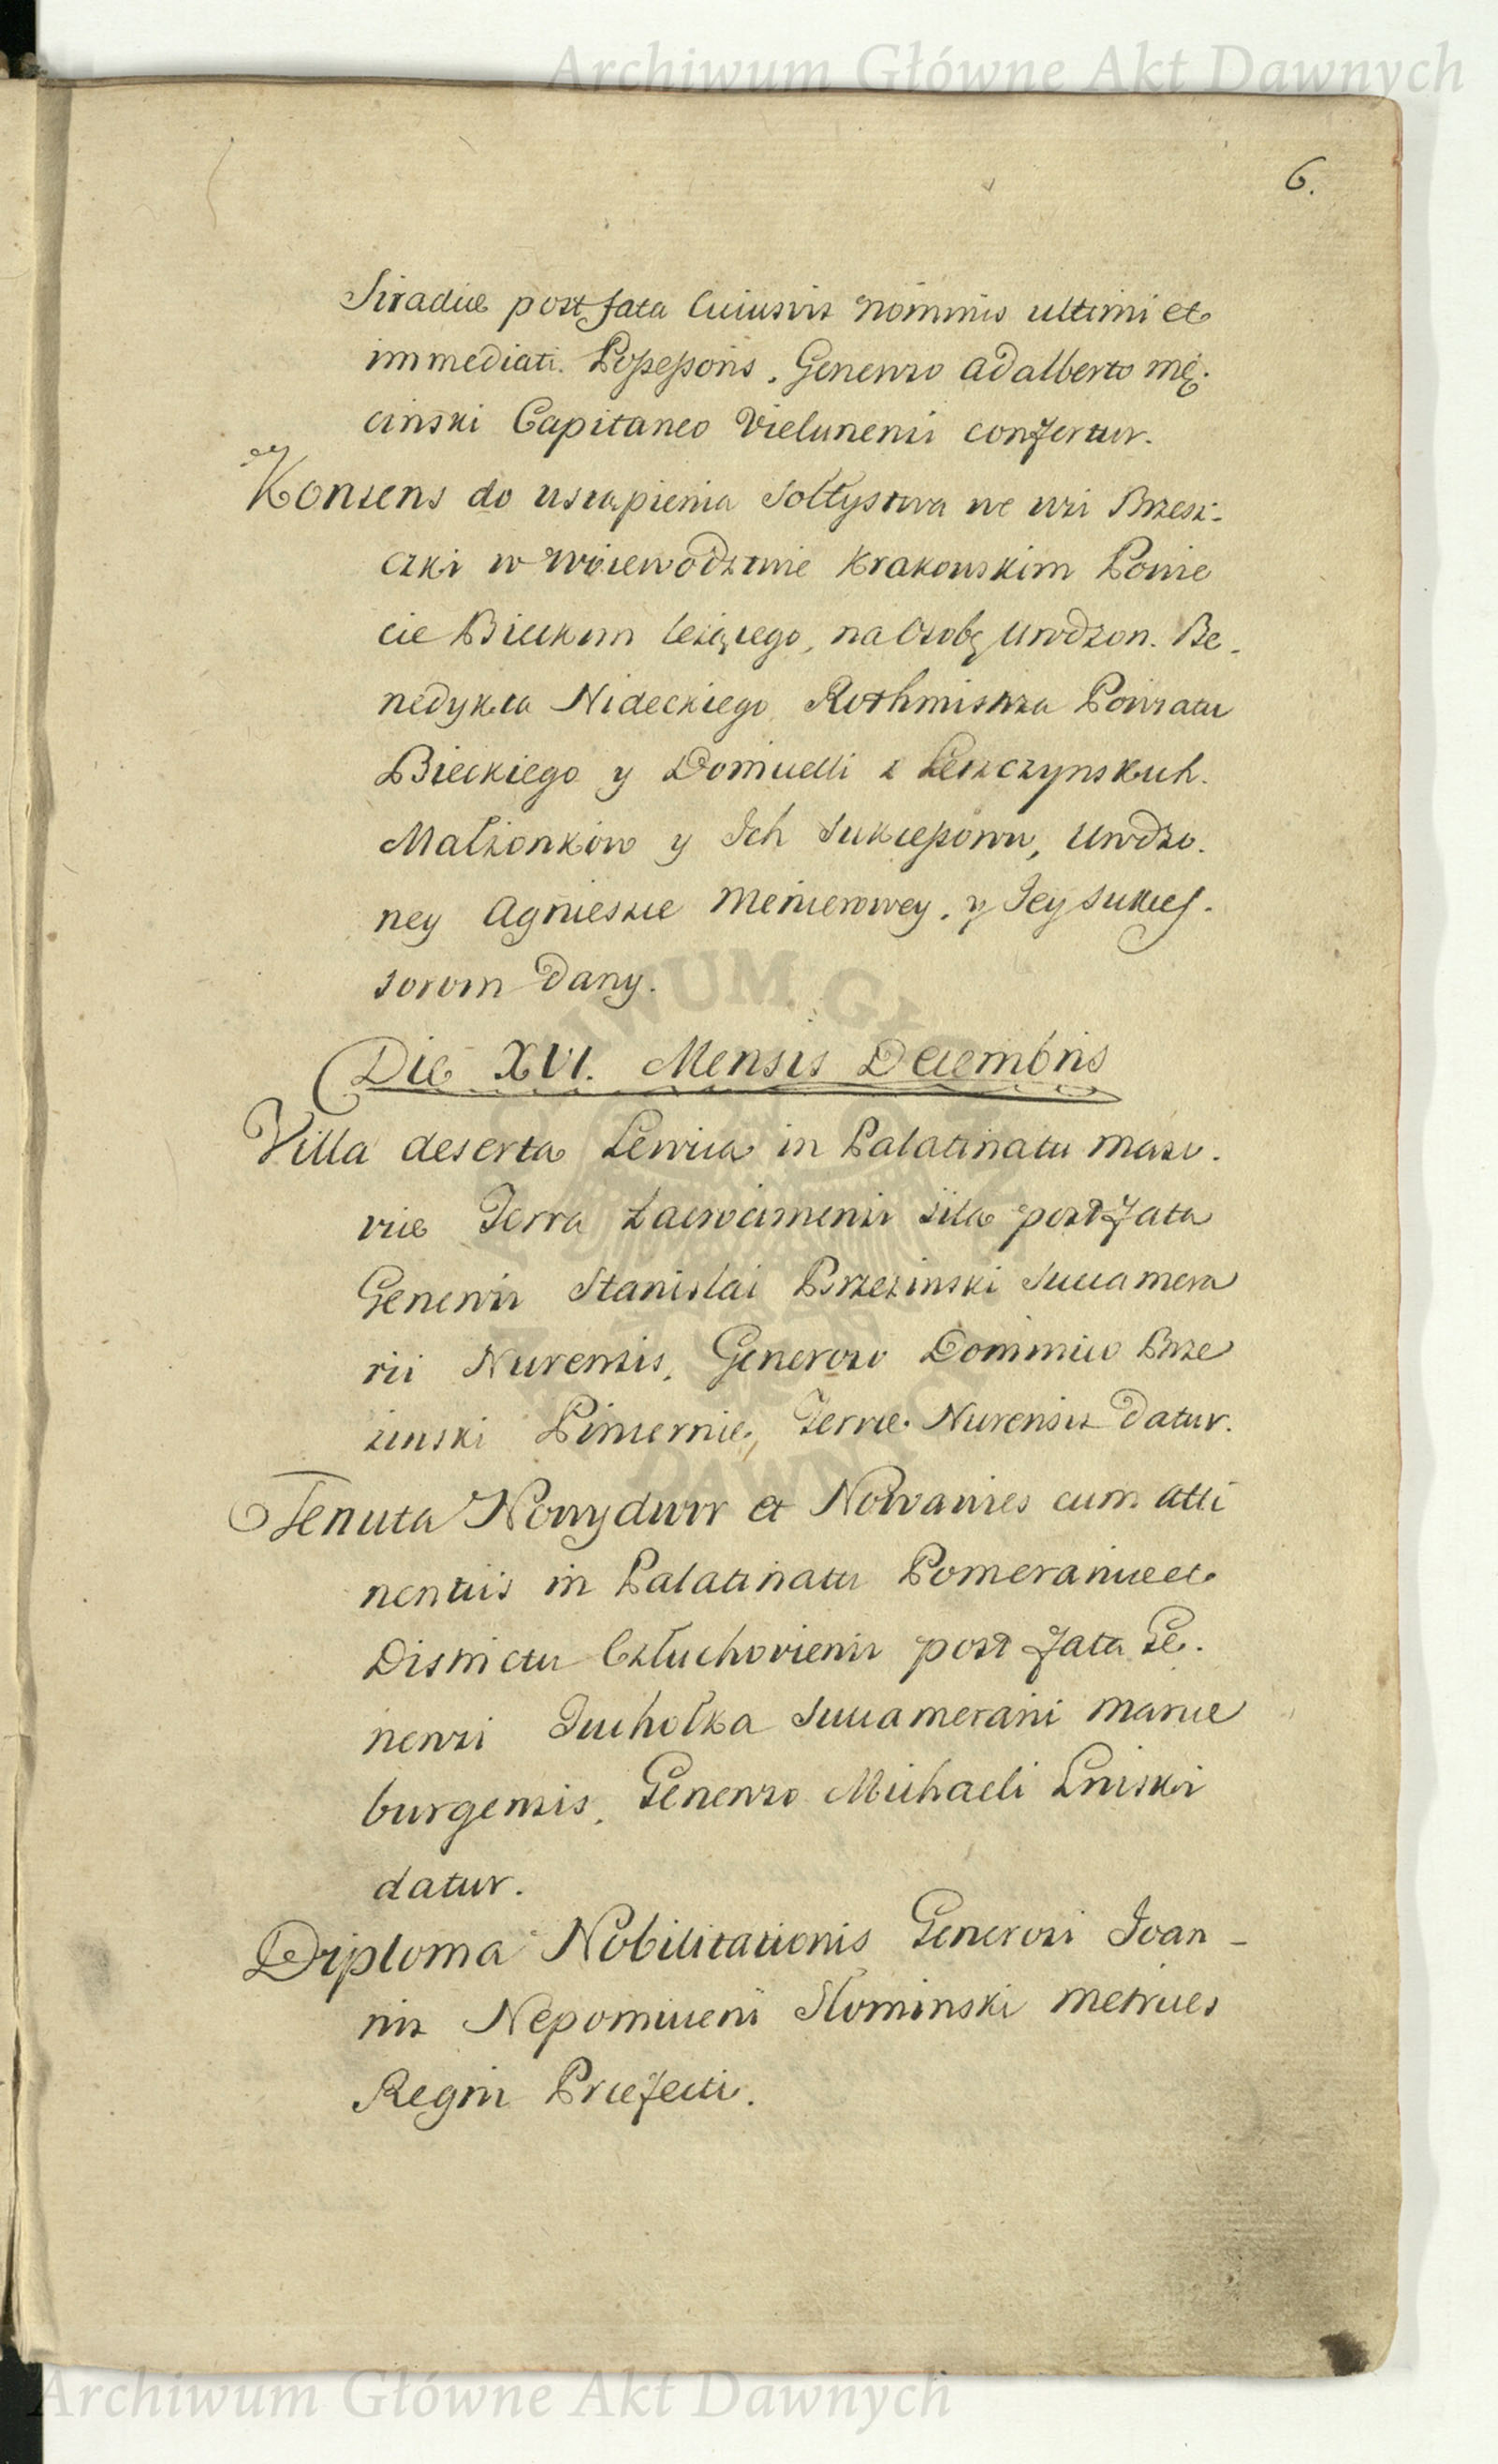 Archiwum Główne Akt Dawnych
6.
Siradiæ post fata cuiusvis nominis ultimi et
immediati Possessoris, Generoso Adalberto Mę-
cinski Capitaneo Vielunensi confertur.
Konsens do ustąpienia Sołtystwa we wsi Brzesz-
czki w Woiewodztwie Krakowskim Powie
cie Bieckim leżącego, na Osobę Urodzon. Be-
nedykta Nideckiego Rothmistrza Powiatu
Bieckiego y Domicelli z Leszczynskich
Małżonków y Ich Sukcessorów, Urodzo-
ney Agnieszce Menierowey, y Jey Sukces-
sorom dany.
Die XVI. Mensis Decembris
Villa deserta Lewica in Palatinatu Maso-
viæ Terra Zacrocimensi sita post fata
Generosi Stanislai Brzezinski Succamera
rii Nurensis, Generoso Dominico Brze
zinski Pincernæ, Terræ Nurensis datur.
Tenuta Nowydwor et Nowawies cum atti
nentiis in Palatinatu Pomeraniæ et
Districtu Człuchoviensi post fata Ge-
nerosi Tuchołka Succamerarii Marie
burgensis, Generoso Michaeli Lniski
datur.
Diploma Nobilitationis Generosi Joan-
nis Nepomuceni Słominski Metrices
Regni Præfecti.
ARCHIWUM GŁÓWNE AKT DAWNYCH
Archiwum Główne Akt Dawnych